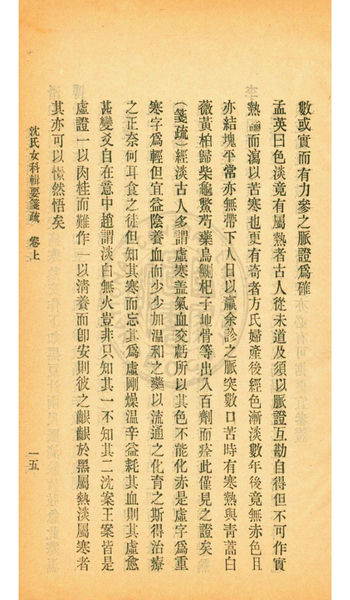 數或實而有力參之脈證爲確
孟英曰色淡竟有屬熱者古人從未道及須以脈證互勘自得但不可作實
熱論而瀉以苦寒也更有奇者方氏婦產後經色漸淡數年後竟無赤色且
亦結塊平常亦無帶下人日以羸余診之脈突數口苦時有寒熱與青蒿白
薇黃柏歸柴龜鱉芍藥烏鰂杞子地骨等出入百劑而痊此僅見之證矣
(箋疏)經淡古人多謂虛寒蓋氣血交虧所以其色不能化赤是虛字爲重
寒字爲輕但宜益陰養血而少少加溫和之藥以流通之化育之斯得治療
之正奈何耳食之徒但知其寒而忘其爲虛剛燥溫辛益耗其血則其虛愈
甚變爻自在意中趙謂淡白無火豈非只知其一不知其二沈案王案皆是
虛證一以肉桂而難作一以清養而卽安則彼之齦齦於黑屬熱淡屬寒者
其亦可以憬然悟矣
沈氏女科輯要箋疏 卷上
一五